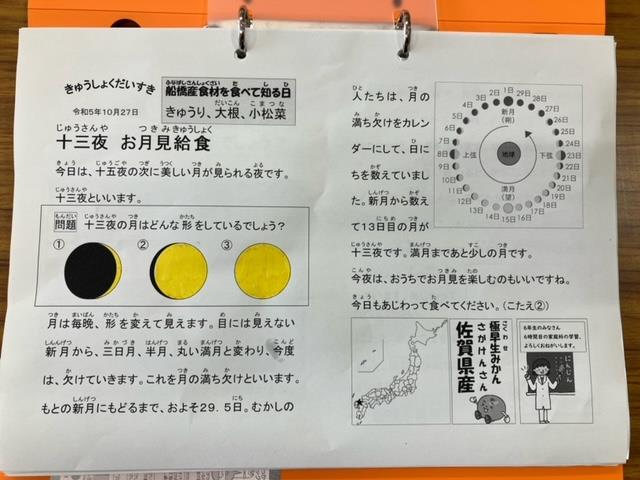 きゅうしょくだいすき
令和5年10月27日
船橋産食材を食べて知る日
きゅうり、大根、小松菜
十三夜 お月見給食
今日は、十五夜の次に美しい月が見られる夜です。
十三夜といいます。
問題 十三夜の月はどんな形をしているでしょう？
① ② ③
月は毎晩、形を変えて見えます。目には見えない
新月から、三日月、半月、丸い満月と変わり、今度
は、欠けていきます。これを月の満ち欠けといいます。
もとの新月にもどるまで、およそ29.5日。むかしの
人たちは、月の
満ち欠けをカレン
ダーにして、日に
ちを数えていまし
た。新月から数え
て13日目の月が
十三夜です。満月まであと少しの月です。
今夜は、おうちでお月見を楽しむのもいいですね。
今日もあじわって食べてください。（こたえ②）
1日
2日
3日
4日
5日
6日
7日
8日
9日
10日
11日
12日
13日
14日
15日
16日
17日
18日
19日
20日
21日
22日
23日
24日
25日
26日
27日
28日
29日
新月
(朔)
上弦
地球
下弦
満月
(望)
極早生みかん
さがけんさん
佐賀県産
6年生のみなさん
6時間目の家庭科の学習、
よろしくおねがいします。
にんじん